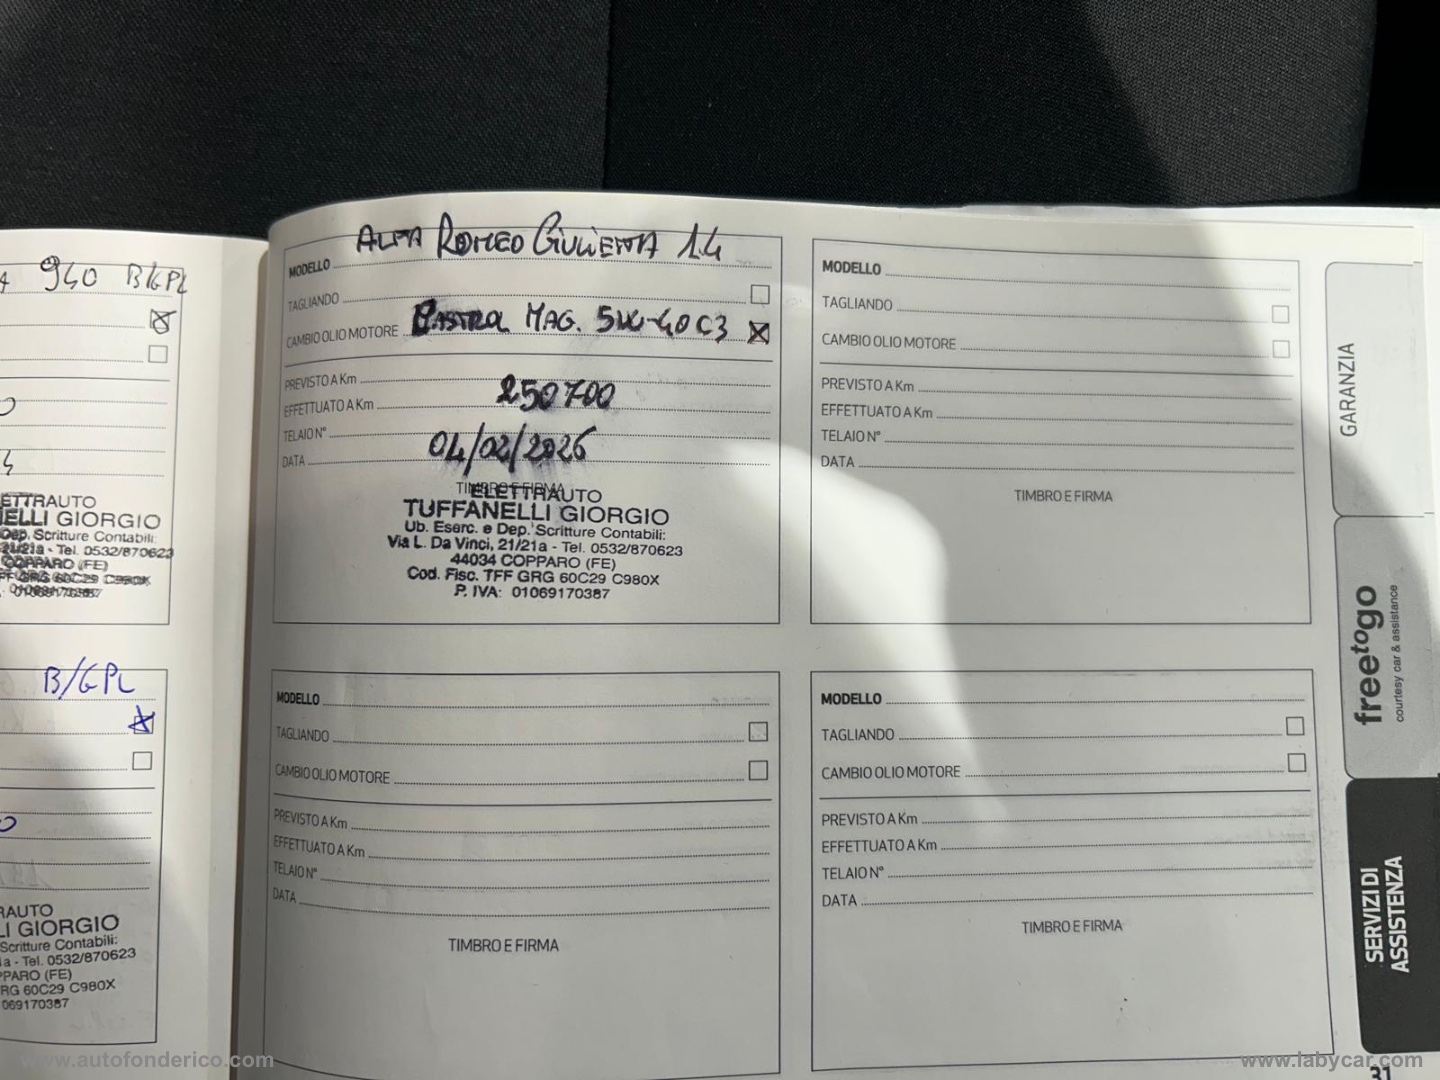 940 B/GPL
ETTRAUTO
NELLI GIORGIO
Dep. Scritture Contabili:
21/21a - Tel. 0532/870623
COPPARO (FE)
FF GRG 60C29 C980X
01069170387
B/GPL
RAUTO
LI GIORGIO
Scritture Contabili:
1a - Tel. 0532/870623
PPARO (FE)
RG 60C29 C980X
069170387
ALFA ROMEO GIULIETTA 1.4
MODELLO
TAGLIANDO
CAMBIO OLIO MOTORE CASTROL MAG. 5W-40 C3
PREVISTO A Km
EFFETTUATO A Km 250700
TELAIO N°
DATA 04/02/2026
TIMBRO E FIRMA
ELETTRAUTO
TUFFANELLI GIORGIO
Ub. Eserc. e Dep. Scritture Contabili:
Via L. Da Vinci, 21/21a - Tel. 0532/870623
44034 COPPARO (FE)
Cod. Fisc. TFF GRG 60C29 C980X
P. IVA: 01069170387
MODELLO
TAGLIANDO
CAMBIO OLIO MOTORE
PREVISTO A Km
EFFETTUATO A Km
TELAIO N°
DATA
TIMBRO E FIRMA
MODELLO
TAGLIANDO
CAMBIO OLIO MOTORE
PREVISTO A Km
EFFETTUATO A Km
TELAIO N°
DATA
TIMBRO E FIRMA
MODELLO
TAGLIANDO
CAMBIO OLIO MOTORE
PREVISTO A Km
EFFETTUATO A Km
TELAIO N°
DATA
TIMBRO E FIRMA
GARANZIA
freetogo
courtesy car & assistance
SERVIZI DI
ASSISTENZA
31
www.autofonderico.com
www.labycar.com